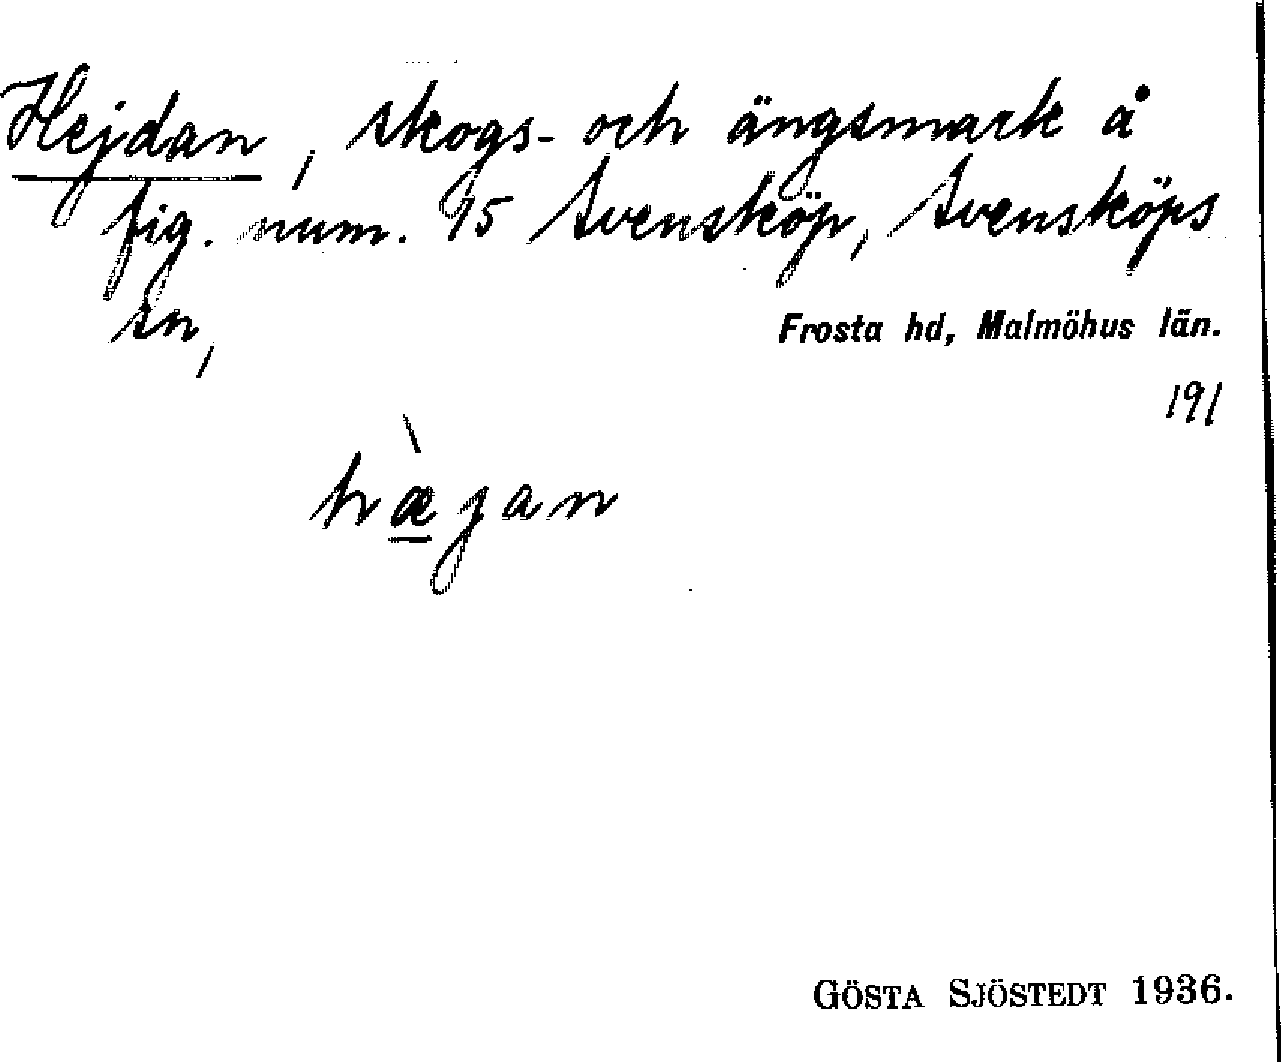 Hejdan, skogs- och ängsmark å
fig. num. 95 Svensköp, Svensköps
sn,
Frosta hd, Malmöhus län.
191
hæ̱̀jan
GÖSTA SJÖSTEDT 1936.